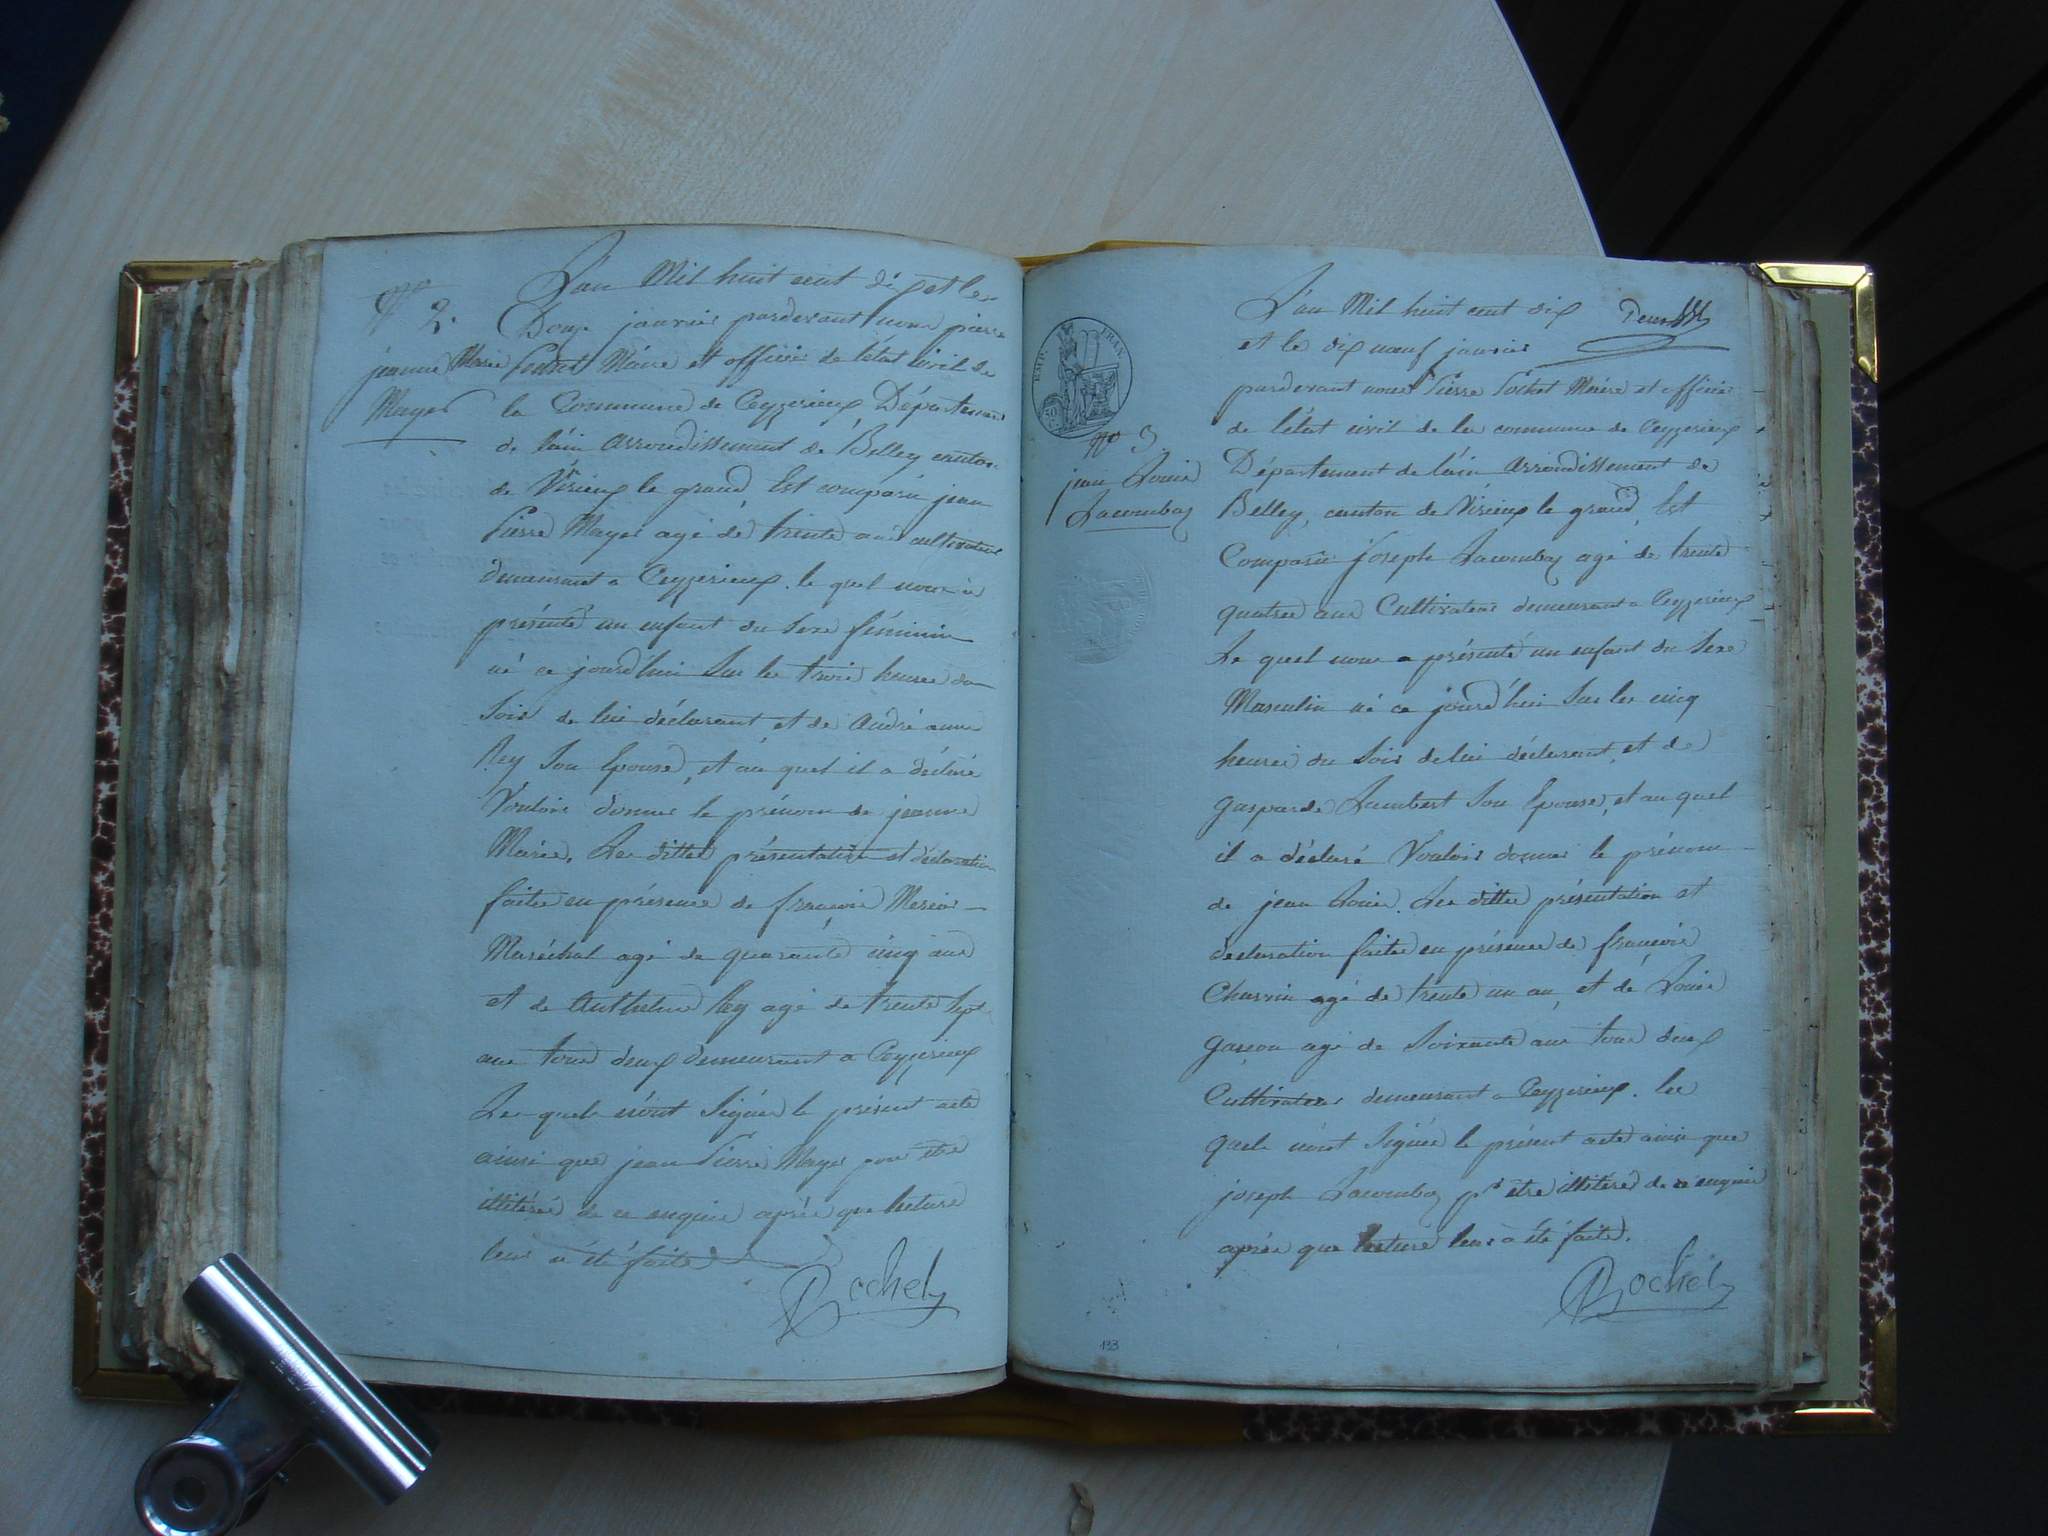 N° 2.
jeanne Marie
Mayer
L'an Mil huit cent dix et les
Douze janvier pardevant nous pierre
Pochet Maire et officier de l'état civil de
la Commune de Ceyzerieux Département
de l'ain arrondissement de Belley canton
de Virieux le grand, Est comparu jean
Pierre Mayer agé de trente ans cultivateur
demeurant a Ceyzerieux. le quel nous à
présenté un enfant du Sexe féminin
né ce jourd'hui Sur les trois heures du
Soir de lui déclarant, et de André anne
Rey Son Epouse, et au quel il a déclaré
Vouloir donner le prénom de jeanne
Marie, Les dittes présentation et déclaration
faites en présence de francois
Maréchal agé de quarante cinq ans
et de Anthelme Rey agé de trente Sept
ans tous deux demeurant a Ceyzerieux
Les quels n'ont Signés le présent acte
ainsi que jean Pierre Mayer pour être
illitérés de ce enquis après que lecture
leur a été faite
Pochet
EMP. FRAN.
50 C.
N° 3
jean Louis
Lacombaz
L'an Mil huit cent dix
et le dix neuf janvier
pardevant nous Pierre Pochet Maire et officier
de l'état civil de la commune de Ceyzerieux
Département de l'ain arrondissement de
Belley, canton de Virieux le grand, Est
Comparu joseph Lacombaz agé de trente
quatre ans Cultivateur demeurant a Ceyzerieux
Le quel nous a présenté un enfant du Sexe
Masculin né ce jourd'hui Sur les cinq
heures du Soir de lui déclarant, et de
gasparde Lambert Son Epouse, et au quel
il a déclaré Vouloir donner le prénom
de jean Louis. Les dittes présentation et
déclaration faites en présence de francois
Charvin agé de trente un an, et de Louis
gascon agé de Soixante ans tous deux
Cultivateurs demeurant a Ceyzerieux. les
quels n'ont Signés le présent acte ainsi que
joseph Lacombaz pr être illitérés de ce enquis
après que lecture leur à été faite.
Pochet
133